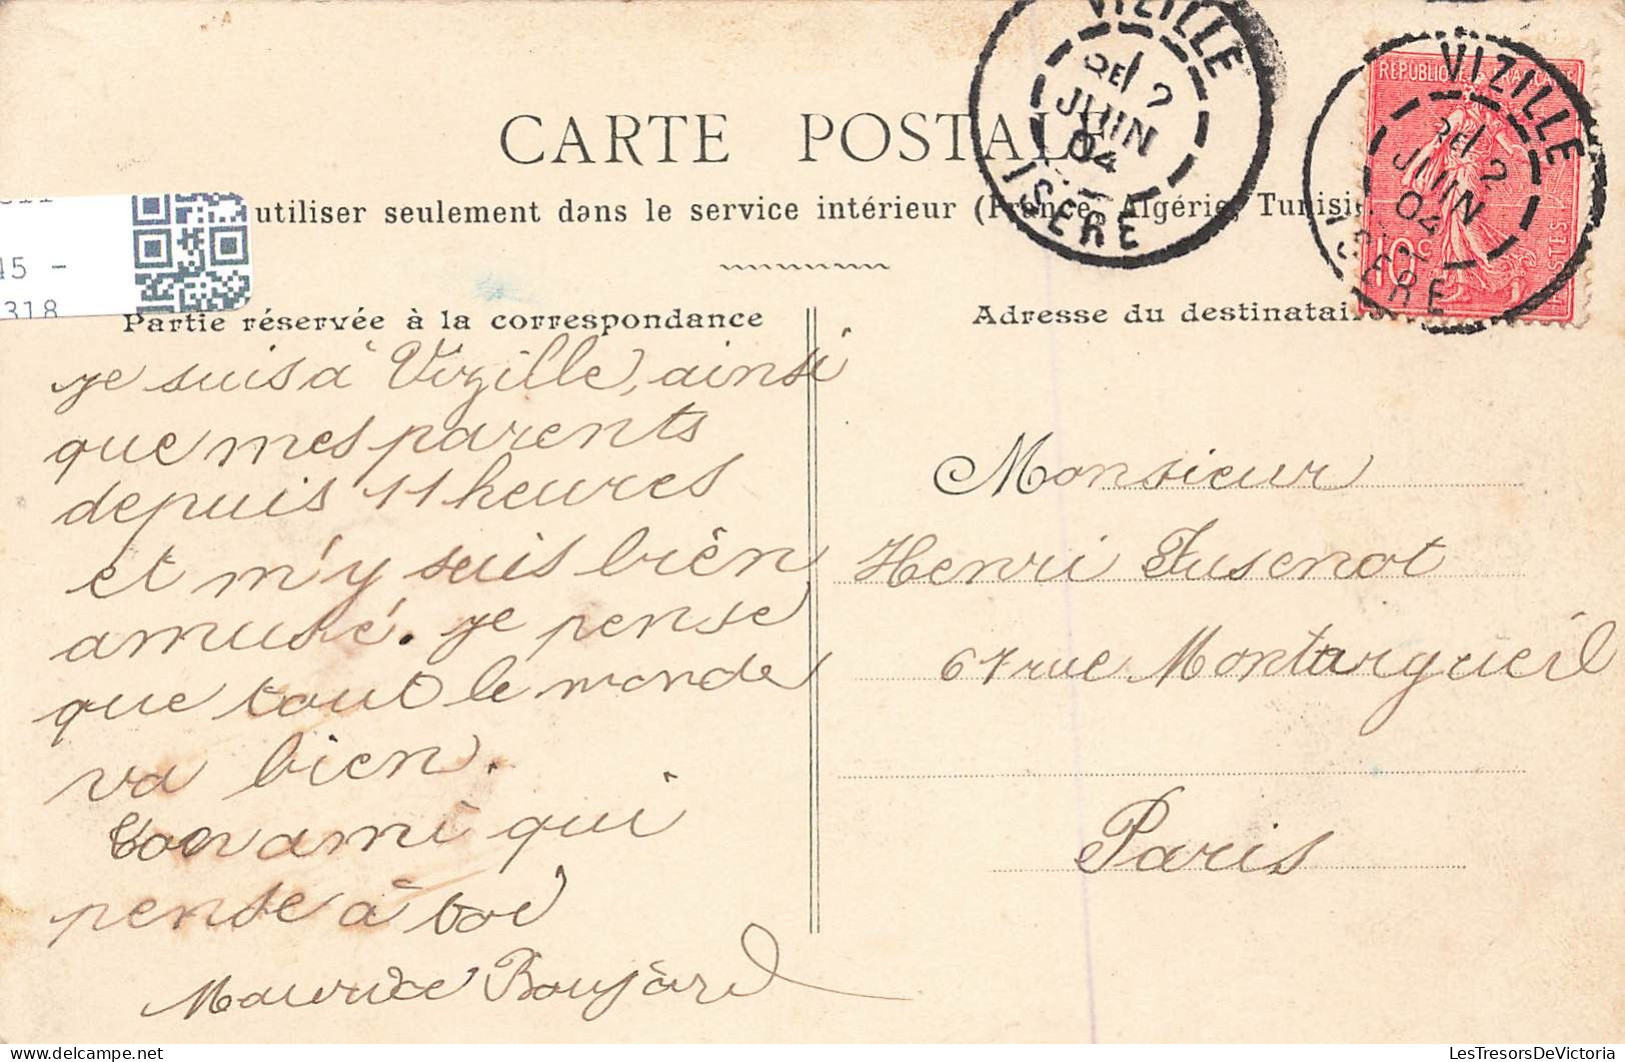 CARTE POSTALE
utiliser seulement dans le service intérieur (France, Algérie, Tunisie
Partie réservée à la correspondance
Adresse du destinataire
je suis à Vizille, ainsi
que mes parents
depuis 11 heures
et m'y suis bien
amusé. je pense
que tout le monde
va bien.
ton ami qui
pense à toi
Maurice Boujard
Monsieur
Henri Fusenot
67 rue Montargueil
Paris
VIZILLE
2
JUIN
04
ISERE
VIZILLE
2
JUIN
04
ISERE
REPUBLIQUE FRANCAISE
10c
POSTES
45 -
318
LesTresorsDeVictoria